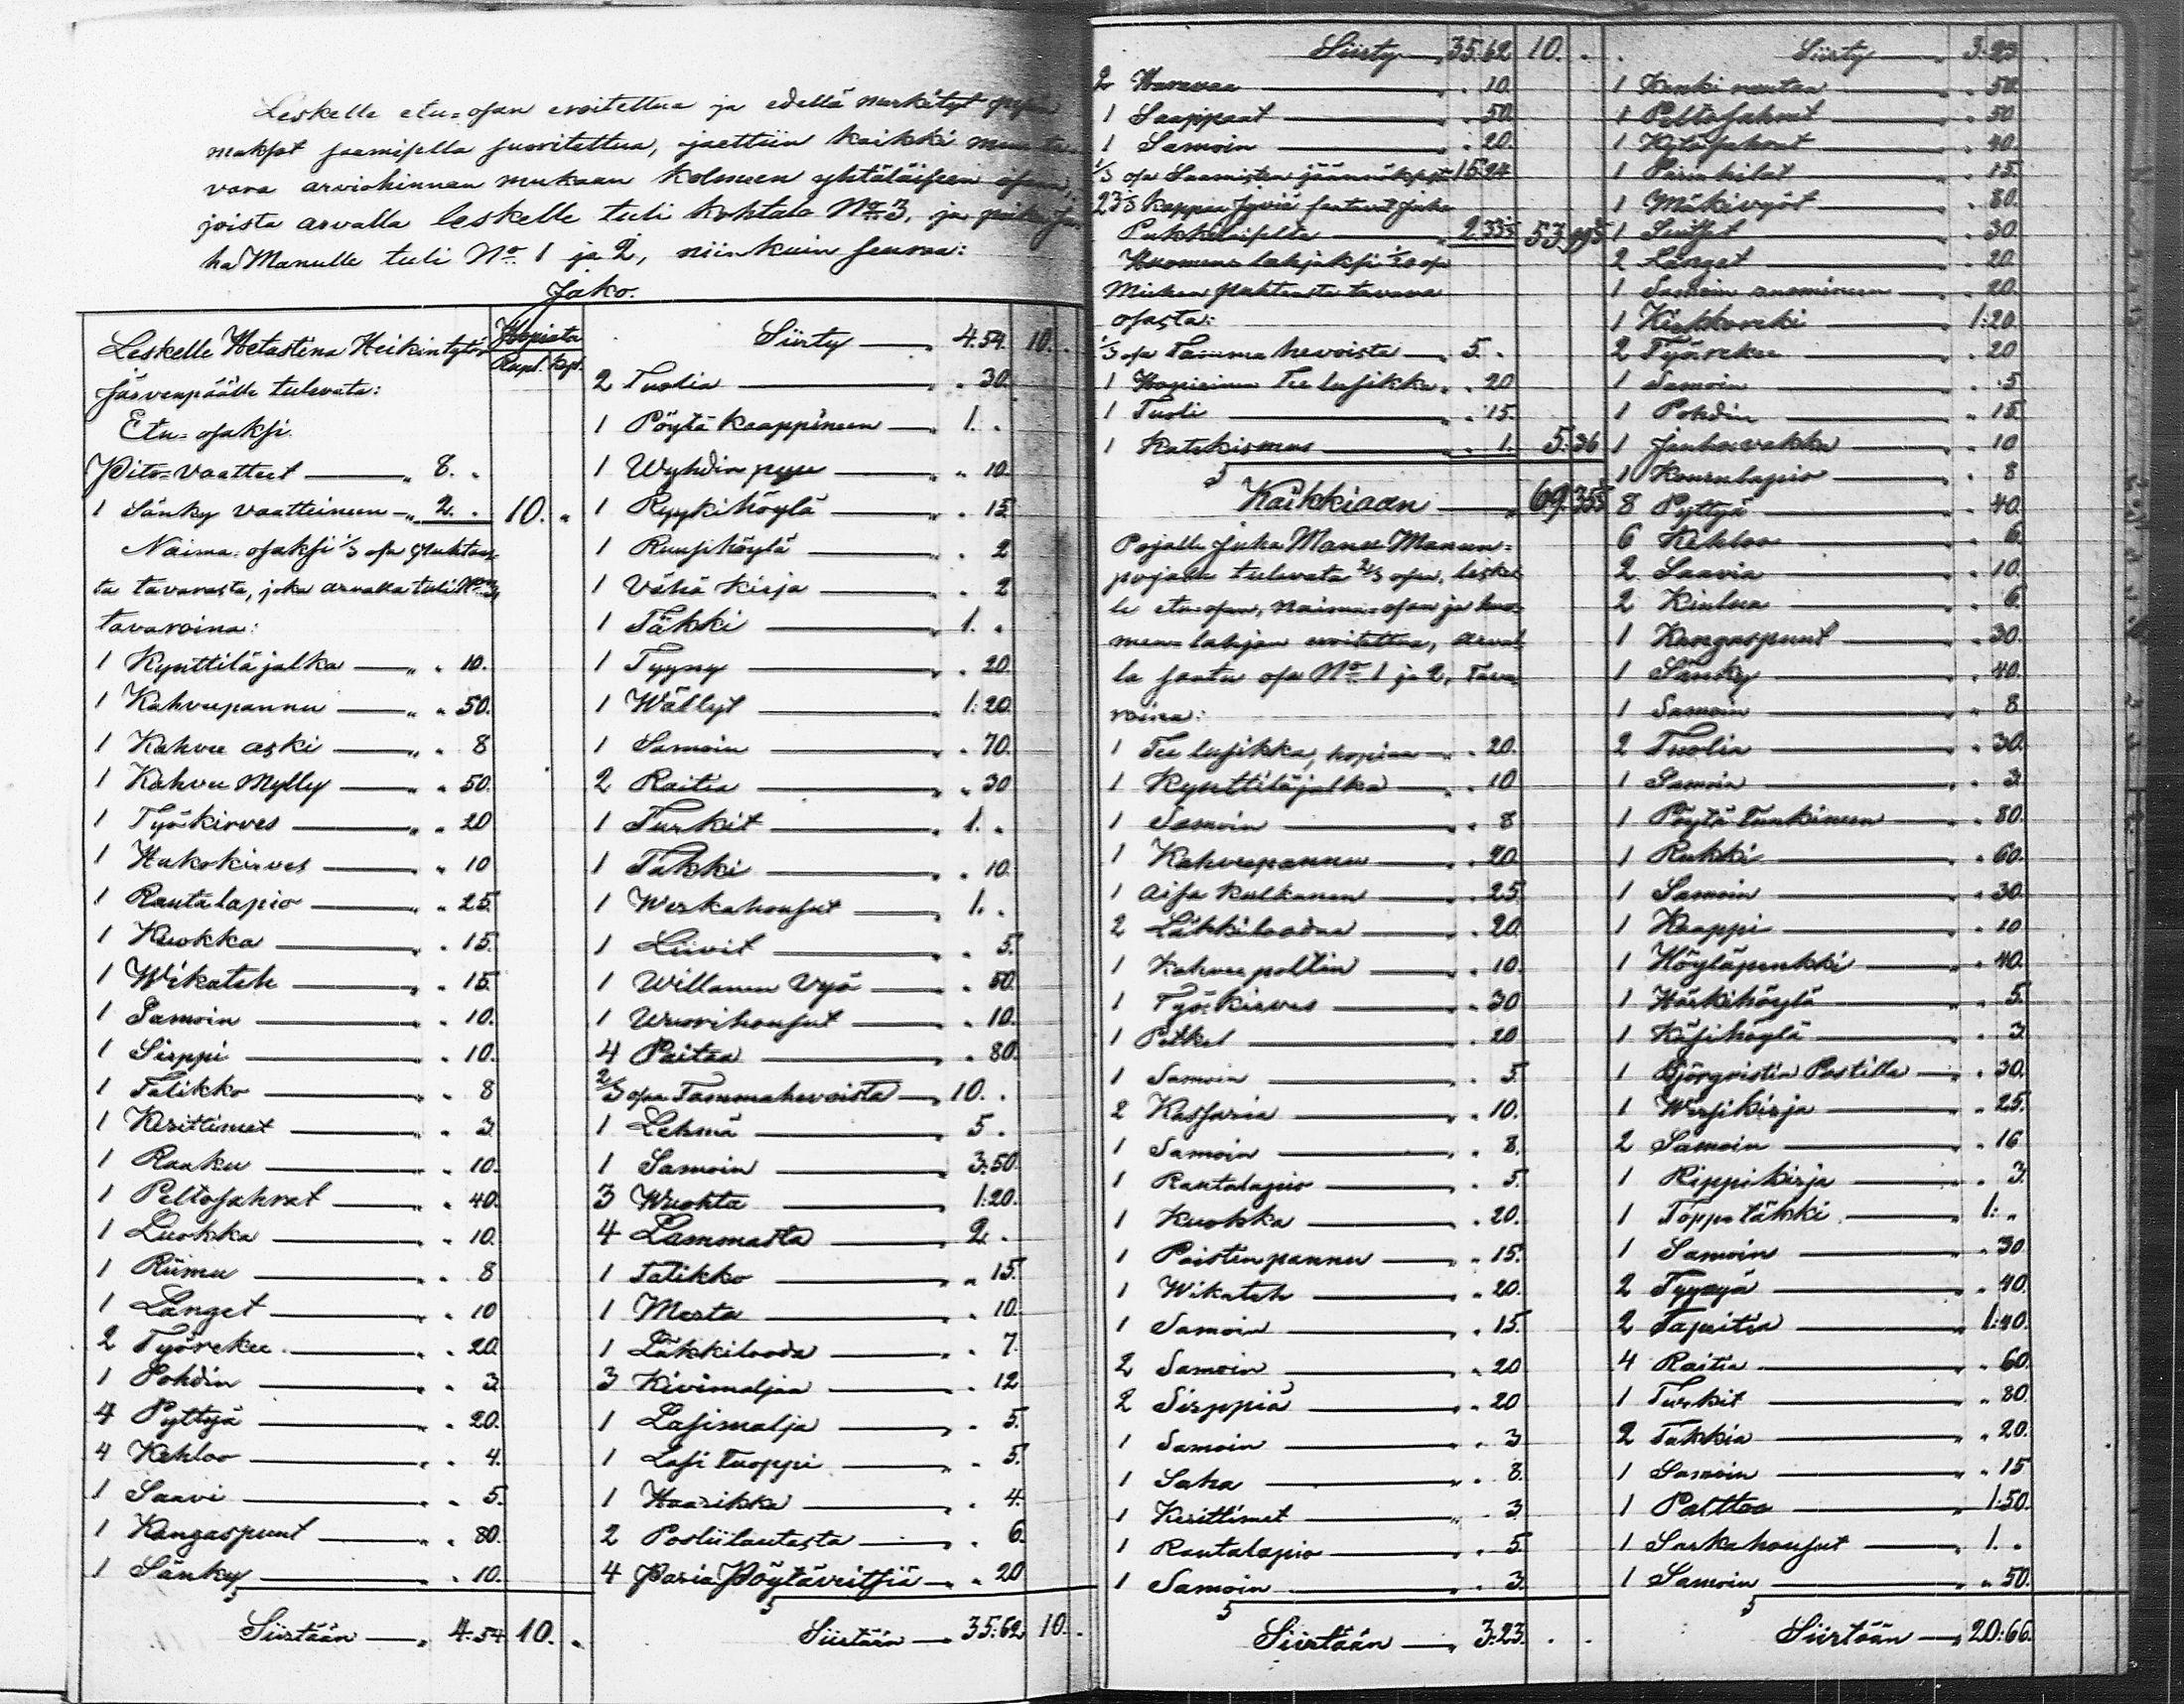 Leskelle etu=osan eroitettua ja edellä merkityt
maksot saamisella suoritettua, jaettiin kaikki
vara arviohinnan mukaan kolmeen yhtäläiseen osaan,
joista arvalla leskelle tuli kohtalo No 3, ja
ha Manulle tuli No 1 ja 2, niinkuin seuraa:
Jako.
Leskelle Hetastina Heikintytär
Hopiata
Rupl. kop.
Järvenpäälle tulevata:
Etu=osaksi.
Pito=Vaatteet — „ 8. „
1 Sänky vaatteineen — „ 2. „ 10. „
Naima=osaksi 1/3 osa puhtaas
ta tavarasta, joka arvalla tuli No 3,
tavaroina:
1 Kynttiläjalka — „ „ 10.
1 Kahveepannu — „ „ 50.
1 Kahvee aski — „ „ 8
1 Kahvee Mylly — „ „ 50.
1 Työkirves — „ „ 20
1 Hakokirves — „ „ 10
1 Rautalapio — „ „ 25.
1 Kuokka — „ „ 15.
1 Wikateh — „ „ 15.
1 Samoin — „ „ 10.
1 Sirppi — „ „ 10.
1 Talikko — „ „ 8
1 Keritimet — „ „ 3
1 Raaku — „ „ 10.
1 Peltosahrat — „ „ 40.
1 Luokka — „ „ 10.
1 Riimu — „ „ 8
1 Länget — „ „ 10
2 Työrekee — „ „ 20
1 Pohdin — „ „ 3
4 Pyttyä — „ „ 20.
4 Kehloo — „ „ 4.
1 Saavi — „ „ 5.
1 Kangaspuut — „ „ 80.
1 Sänky — „ „ 10.
Siirtään — „ 4.54 10. „
Siirty — 4.54. 10. „
2 Tuolia — „ „ 30.
1 Pöytä kaappineen — „ 1. „
1 Wyhdin puu — „ „ 10
1 Ryykihöylä — „ „ 15.
1 Ruusihöylä — „ „ 2
1 Vähä kirja — „ „ 2
1 Täkki — „ 1. „
1 Tyyny — „ „ 20.
1 Wällyt — „ 1:20.
1 Samoin — „ „ 70.
2 Raitia — „ „ 30
1 Turkit — „ 1. „
1 Takki — „ „ 10.
1 Werkahousut — „ 1. „
1 Liivit — „ „ 5.
1 Willanen Vyö — „ „ 50.
1 Wuorihousut — „ „ 10.
4 Paitaa — „ „ 80.
2/3 osaa Tammahevoista — „ 10. „
1 Lehmä — „ 5 „
1 Samoin — „ 3:50.
3 Wuohta — „ 1:20.
4 Lammasta — „ 2 „
1 Talikko — „ „ 15.
1 Merta — „ „ 10.
1 Läkkilooda — „ „ 7.
3 Kivimaljaa — „ „ 12
1 Lasimalja — „ „ 5.
1 Lasi Tuoppi — „ „ 5.
1 Haarikka — „ „ 4.
2 Posliilautasta — „ „ 6.
4 Paria Pöytäveitsiä — „ „ 20
Siirtään — „ 35:62 10. „
Siirty — „ 35.62 10. „
2 Haravaa — „ „ 10.
1 Saappaat — „ „ 50.
1 Samoin — „ „ 20.
1/3 osa Saamisten jäännöksistä 15.24
23/5 kappaa Jyviä saatavat Juha
Pukkelaiselta — „ 2.335 53.995
Huomen=lahjaksi 1/20 osa
Miehen puhtaasta tavara
osasta:
1/3 osa Tamma hevoista — „ 5. „
1 Hopiainen Tee lusikka „ „ 20
1 Tuoli — „ „ 15.
1 Katekismus — „ „ 1. 5.36
Kaikkiaan — „ 69.355
Pojalle Juha Manu Manun=
pojalle tulevata 2/3 osaa, leskel
le etu=osan, naima=osan ja huo=
men=lahjan eroitettua, arval
la saatu osa No 1 ja 2, Tava=
roina:
1 Tee lusikka, hopiaa — „ 20.
1 Kynttiläjalka — „ „ 10
1 Samoin — „ „ 8
1 Kahveepannu — „ „ 20
1 Aisa kulkunen — „ „ 25.
2 Läkkiloodaa — „ „ 20.
1 Kahvee poltin — „ „ 10.
1 Työkirves — „ „ 30
1 Petkel — „ „ 20
1 Samoin — „ „ 5.
2 Kassaria — „ „ 10.
1 Samoin — „ „ 8.
1 Rautalapio — „ „ 5.
1 Kuokka — „ „ 20.
1 Paistinpannu — „ „ 15.
1 Wikateh — „ „ 20.
1 Samoin — „ „ 15.
2 Samoin — „ „ 20
2 Sirppiä — „ „ 20
1 Samoin — „ „ 3
1 Saha — „ „ 8.
1 Kerittimet — „ „ 3.
1 Rautalapio — „ „ 5.
1 Samoin — „ „ 3.
Siirtään — „ 3:23. „ „
Siirty — „ 3:23
1 Kanki rautaa — „ „ 50.
1 Peltosahrat — „ „ 50
1 Kytösahrat — „ „ 40.
1 — „ „ 15.
1 Mäkivyöt — „ „ 80.
1 Suitset — „ „ 30
2 Länget — „ „ 20
1 Samoin — „ „ 20.
1 Kirkkoreki — „ 1:20.
2 Työrekee — „ „ 20
1 Samoin — „ „ 5
1 Pohdin — „ „ 15
1 Jauhovakka — „ „ 10
1 Kourulapio — „ „ 8
8 Pyttyä — „ „ 40.
6 Kehloo — „ „ 6.
2 Saavia — „ „ 10.
2 Kiulua — „ „ 6.
1 Kangaspuut — „ „ 30.
1 Sänky — „ „ 40.
1 Samoin — „ „ 8
2 Tuolia — „ „ 30.
1 Samoin — „ „ 3
1 Pöytä Laukineen — „ „ 80.
1 Rukki — „ „ 60.
1 Samoin — „ „ 30.
1 Kaappi — „ „ 10
1 Höyläpenkki — „ „ 40.
1 Härkihöylä — „ „ 5.
1 Käsihöylä — „ „ 3
1 Björqvistin Postilla — „ 30.
1 Wirsikirja — „ „ 25.
2 Samoin — „ „ 16
1 Rippikirja — „ „ 3.
1 Toppatäkki — „ 1: „
1 Samoin — „ „ 30
2 Tyynyä — „ „ 40.
2 Tapitia — „ 1:40.
4 Raitia — „ „ 60.
1 Turkit — „ „ 80.
2 Takkia — „ „ 20.
1 Samoin — „ „ 15
1 Palttoo — „ 1:50.
1 Sarkahousut — „ 1. „
1 Samoin — „ „ 50.
Siirtään — „ 20:66.